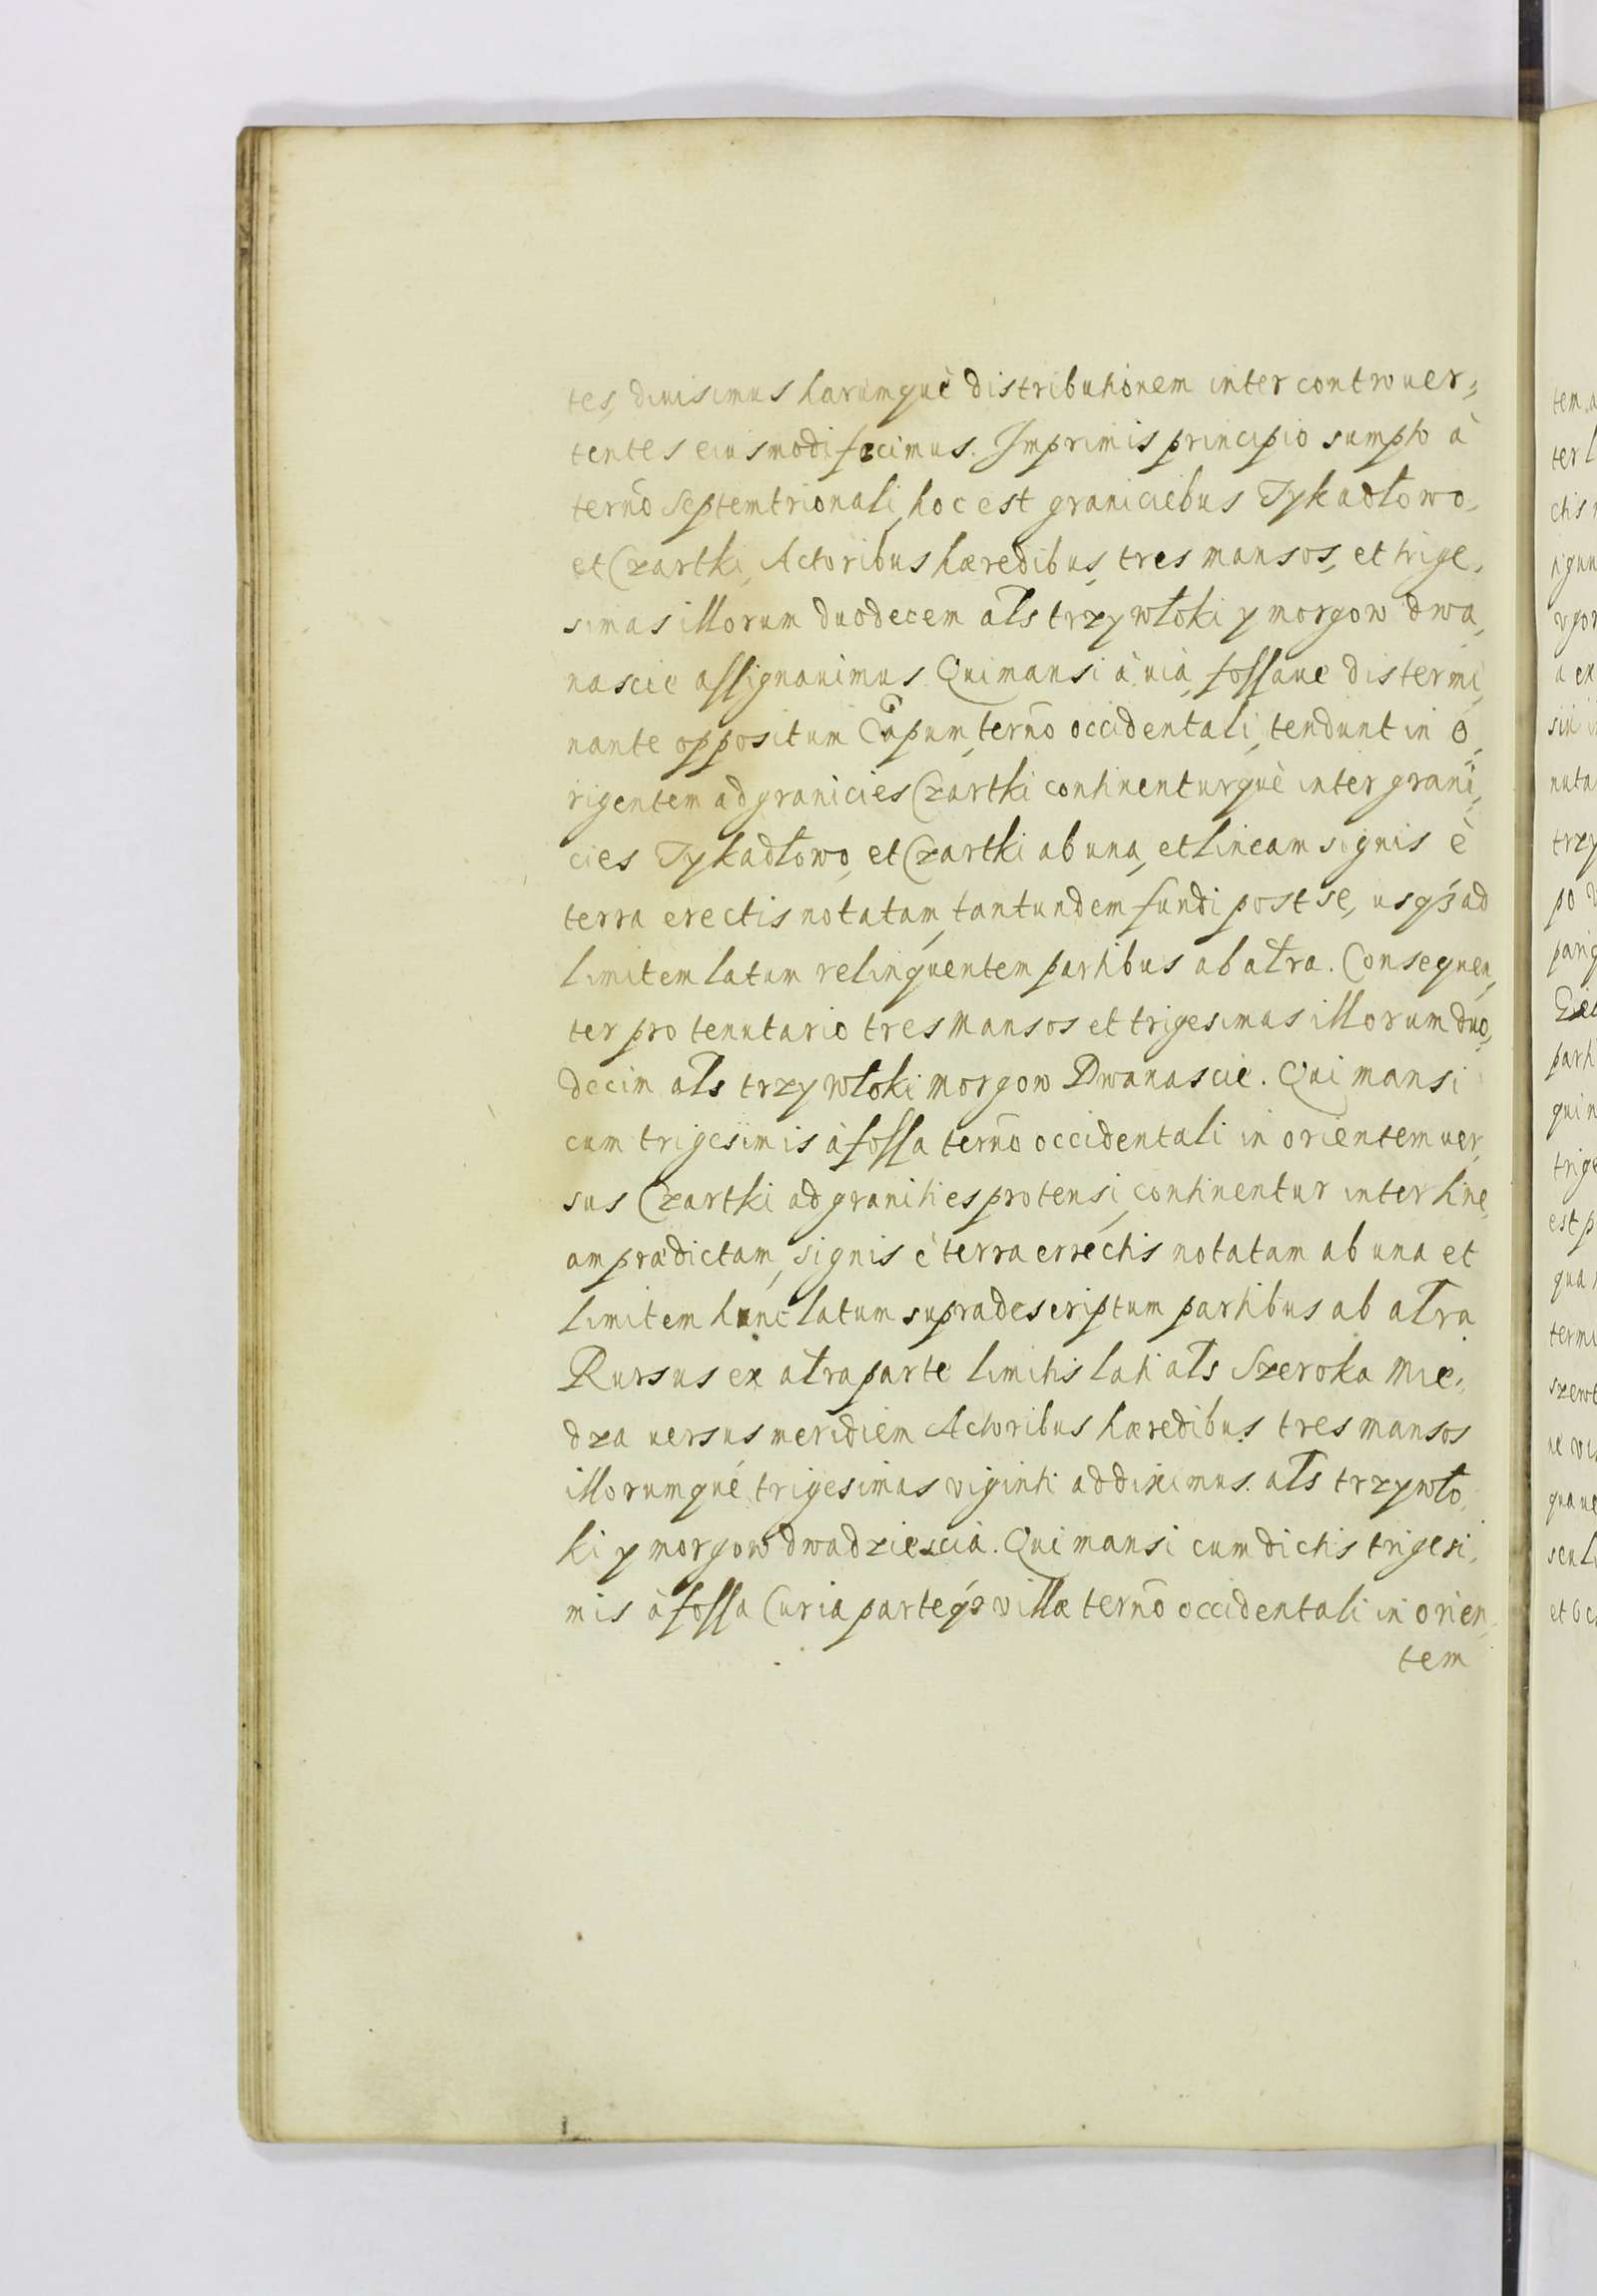 tes, diuisimus harumquè distributionem inter controuer,
tentes eiusmodi fecimus. Imprimis principio sumpto à
termõ septemtrionali, hoc est graniciebus Tykadłowo,
et Czartki, Actoribus hæredibus, tres mansos, et trige,
simas illorum duodecem als trzy włoki y morgow dwa,
nascie assignauimus Qui mansi à uià, fossaue distermi,
nante oppositum Campum, termõ occidentali, tendunt in o,
rigentem ad granicies Czartki continenturquè inter grani,
cies Tykadłowo, et Czartki ab una, et lineam signis è
terra erectis notatam, tantundem fundi post se, usq3 ad
limitem latum relinquentem partibus ab altra. Consequen,
ter pro tenutario tres mansos et trigesimas illorum duo,
decim als trzy włoki morgow Dwanascie. Qui mansi
cum trigesimis à fossa termõ occidentali in orientem uer,
sus Czartki ad granities protensi, continentur inter line,
am prædictam, signis è terra errectis notatam ab una et
limitem hunc latum supradescriptum partibus ab altra
Rursus ex altra parte limitis lati als Szeroka Mie,
dza uersus meridiem Actoribus hæredibus tres mansos
illorumqué trigesimas viginti addiximus. als trzy wło,
ki y morgow dwadziescia. Qui mansi cum dictis trigesi,
mis à fossa Curia parteq3 villæ termõ occidentali in orien,
tem